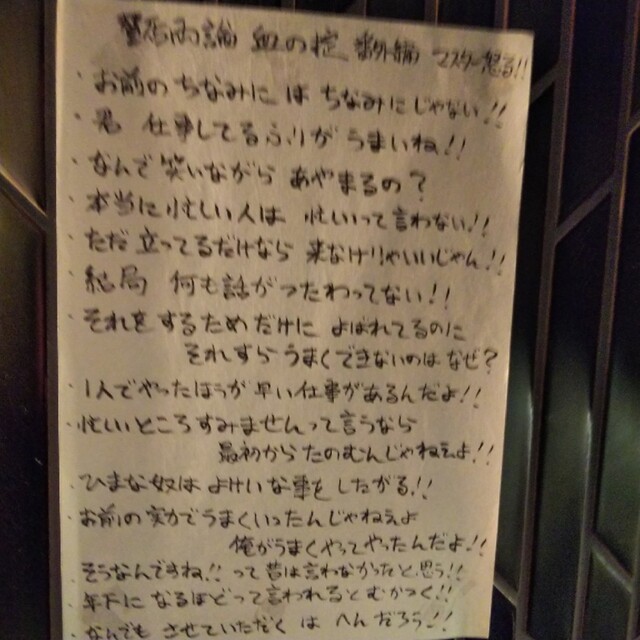 雨論 血の掟 番外編 マスター怒る!!
・お前の ちなみに は ちなみに じゃない!!
・君 仕事してるふりが うまいね!!
・なんで 笑いながら あやまるの?
・本当に 忙しい人は 忙しいって言わない!!
・ただ 立ってるだけなら 来なけりゃいいじゃん!!
・結局 何も話が つたわってない!!
・それを するため だけに よばれてるのに
それすら うまくできないのは なぜ?
・1人でやったほうが 早い仕事があるんだよ!!
・忙しいところ すみませんって言うなら
最初から たのむんじゃねえよ!!
・ひまな奴は よけいな事を したがる!!
・お前の 実力で うまくいったんじゃねえよ
俺が うまく やって やったんだよ!!
・そうなんですね!! って 昔は 言わなかったと 思う!!
・年下に なるほどって 言われると むかつく!!
・なんでも させていただく は へんだろう!!